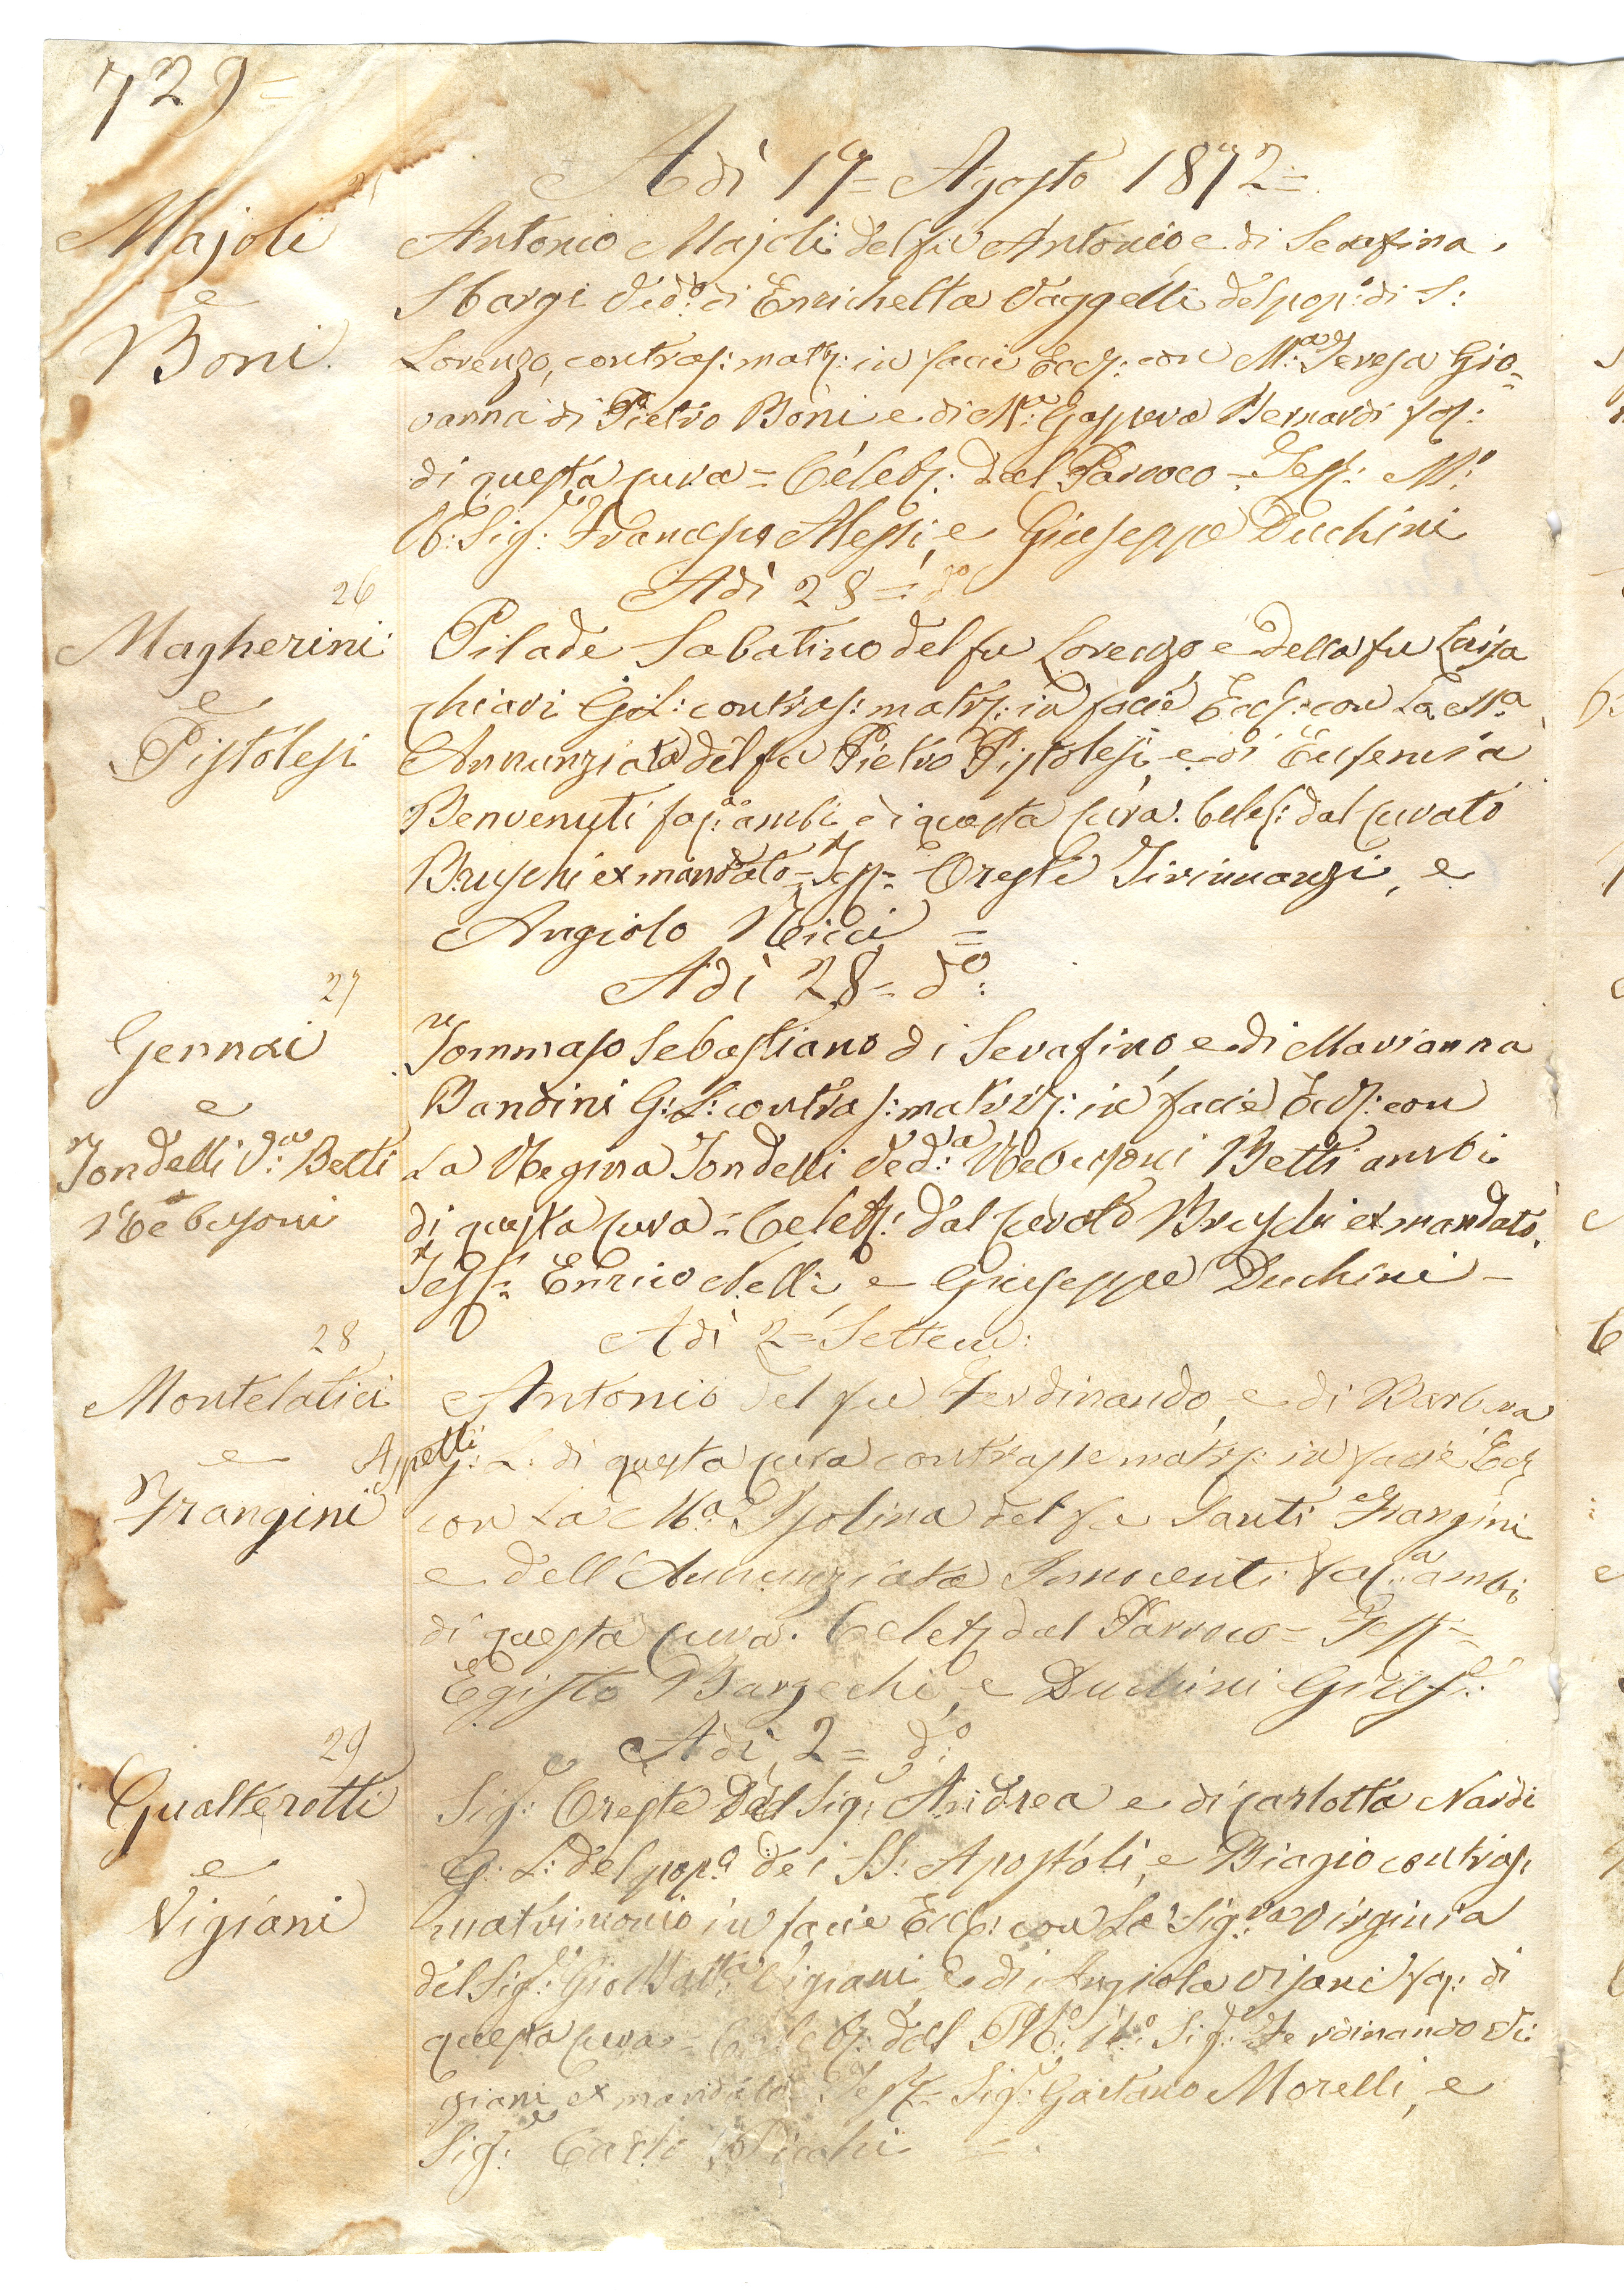 729=
Adì 17= Agosto 1872=
25
Majoli
e
Boni
Antonio Majoli del fu Antonio, e di Serafina
Sbargi Ved:o di Enrichetta Vaggelli del pop:o di S:
Lorenzo, contras: matr: in facie Eccl: con M:a Teresa Gio=
vanna di Pietro Boni e di M:a Gaspera Bernardi fas:
di questa cura = Celeb: dal Parroco = Test: M:o
R: Sig:re Francesco Alessi, e Giuseppe Duchini
Adì 28 = d:o
26
Magherini
e
Pistolesi
Pilade Sabatino del fu Lorenzo e della fu Luisa
Chiari G: L: contras: matr: in facie Eccl: con La M:a
Annunziata del fu Pietro Pistolesi, e di Eugenia
Benvenuti fas: ambi di questa cura. Celeb: dal curato
Bruschi ex mandato = Test= Oreste Tirinnanzi, e
Angiolo Ricci =
Adì 28 = d:o
27
Gennai
e
Tondelli V:a Betti
Rebusoni
Tommaso Sebastiano di Serafino, e di Marianna
Bandini G: L: contras: matri: in facie Eccl: con
La Regina Tondelli Ved:a Rebusoni Betti ambi
di questa cura = Celeb: dal curato Bruschi ex mandato.
Test= Enrico Nelli, e Giuseppe Duchini =
Adì 2= Settem:
28
Montelatici
e
Frangini
Antonio del fu Ferdinando, e di Barbera
Aspetti G: L: di questa cura contrasse matr: in facie Eccl
con La M:a Isolina del fu Santi Frangini
e dell'Annunziata Innocenti fas: ambi
di questa cura. Celeb: dal Parroco = Test=
Egisto Barzechi, e Duchini Gius:e
Adì 2= d:o
29
Gualterotti
e
Vigiani
Sig:re Oreste del Sig:re Andrea e di Carlotta Nardi
G: L: del pop:o dei SS: Apostoli, e Biagio contras:
matrimonio in facie Eccl: con La Sig:ra Virginia
del Sig:re Gio Batt:a Vigiani, e di Angiola Visani fas: di
questa cura = Celeb: dal M:o R:o Sig:re Ferdinando Vi:
giani ex mandato. Test= Sig:re Gaetano Morelli, e
Sig:re Carlo Picchi =